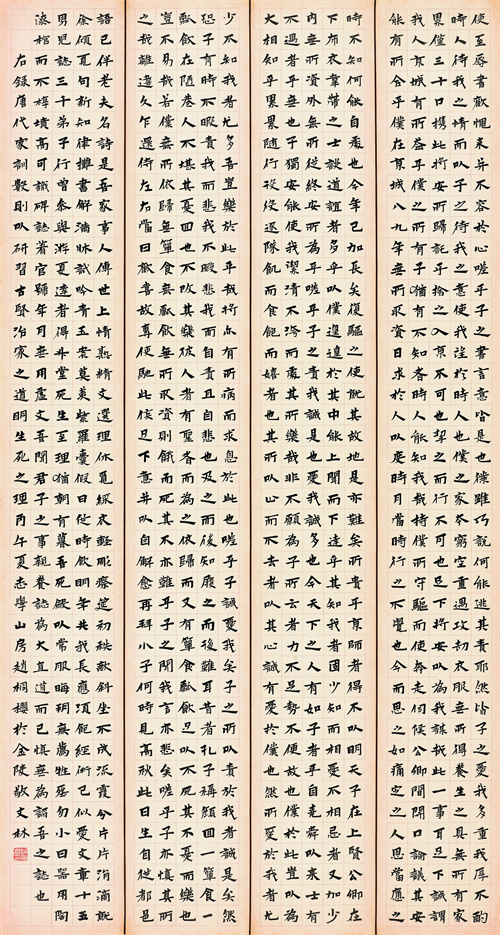 使至辱書歡愧來并不容於心嗟乎子之書言意皆是也僕雖巧說何能逃其責耶然皆子之愛我多重我厚不酌
時人待我之情而以子之待我之意使我望於時人也僕之家本窮空重遇攻劫衣服無所得養生之具無所有家
累僅三十口攜此將安所歸託乎捨之入京不可也挈之而行不可也足下將安以為我謀哉此一事耳足下誠謂
我入京城有所益乎僕之有子猶有不知者時人能知我哉持僕所守驅而使奔走伺候公卿間開口論議其安
能有所合乎僕在京城八九年無所取資日求於人以度時月當時行之不覺也今而思之如痛定之人思當痛之
時不知何能自處也今年已加長矣復驅之使就其故地是亦難矣所貴乎京師者得不以明天子在上賢公卿在
下布衣韋帶之士談道誼者多乎以僕遑遑於其中能上聞而下達乎其知我者固少知而相愛不相忌者又少
內無所資外無所從終安所為乎嗟乎子之責我誠是也愛我誠多也今天下之人有如子者乎自堯舜以來士有
不遇者乎無也子獨安能使我潔清不洿而處其所樂哉非不願為子所云者力不足勢不便故也僕於此豈以為
大相知乎累累隨行役役逐隊飢而食飽而嬉者也其所以止而不去者以其心誠有愛於僕也然所愛於我者
少不知我者尤多吾豈樂於此乎哉將亦有所病而求息於此也嗟乎子誠愛我矣子之所以責於我者誠是矣然
恐子有時不暇責我而悲我不暇悲我而自責且自悲也及之而後知履之而後難耳昔者孔子稱顏回一簞食一
瓢飲在陋巷人不堪其憂回也不改其樂彼人者有聖者而為之依歸而又有簞食瓢飲足以不死其不憂而樂也
豈不易哉若僕無所依歸無簞食無瓢飲無所取資則餓而死其不亦難乎子之聞我言亦悲矣嗟乎子亦慎其所
之哉離違久乍還侍左右當日歡喜故專使馳此候足下意并以自解愈再拜小子何時見高秋此日生自從都邑
語已伴老夫名詩是吾家事人傳世上情熟精文選理休覓綵衣輕凋瘵筵初秩欹斜坐不成流霞分片片涓滴就
徐傾覓句新知律攤書解滿牀試吟青玉案莫羨紫羅囊假日從時飲明年共我長應須飽經術已似愛文章十五
男兒志三千弟子行曾參與游夏達者得升堂死生至理猶朝有暮吾死歛以常服晦朔無薦牲牢勿卜日器用陶
漆棺而不槨墳高可識碑誌著官號年月無用虛文吾聞君子之事親養誌為大直道而已慎無為諂吾之誌也
右錄唐代家訓數則以研習古賢治家之道明生死之理丙午夏志學山房趙桐櫻於金陵敬文林